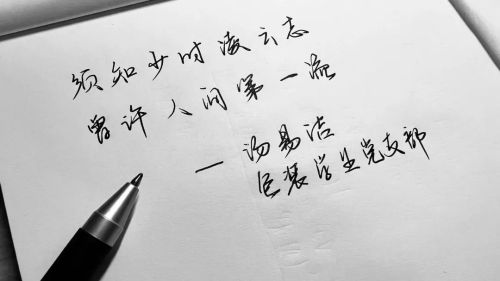 须知少时凌云志
曾许人间第一流
— 汤易洁
包装学生党支部